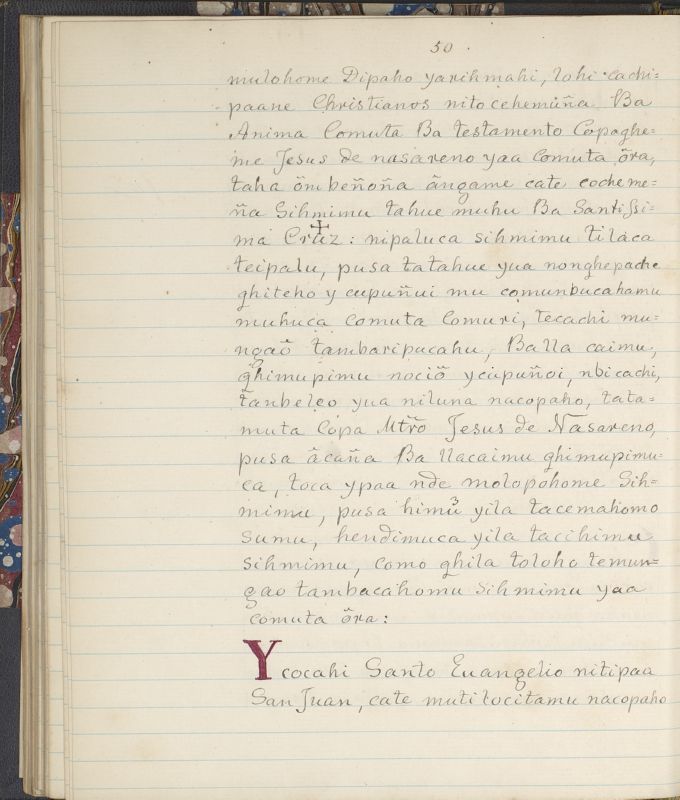 50.
mulohome Dipaho yarihmahi, lohi cachi=
paane Christianos nitocehemuña Ba
Anima Comuta Ba testamento Copaghe=
me Jesus de nasareno yaa Comuta õra,
taha õmbeñoña ângame cate cocheme=
ña Sihmimu tahue muhu Ba Santissi=
ma Cruz: nipaluca sihmimu tilaca
teipalu, pusa tatahue yua nonghepache
ghiteho y cupuñui mu comunbucahamu
muhuca Comuta Comuri, tecachi mu=
ngaõ tambaripucahu, Balla caimu,
ghimupimu nociõ ycupuñoi, nbicachi,
tanbeleo yua niluna nacopaho, tata=
muta Copa Mtro Jesus de Nasareno,
pusa âcaña Ba llacaimu ghimupimu=
ca, toca ypaa nde molopohome Sih=
mimu, pusa himu yila tacemahomo
sumu, hendimuca yila tacihimu
sihmimu, como ghila toloho temun=
gao tambacahomu sihmimu yaa
comuta õra:
Ycocahi Santo Euangelio nitipaa
San Juan, cate mutitocitamu nacopaho